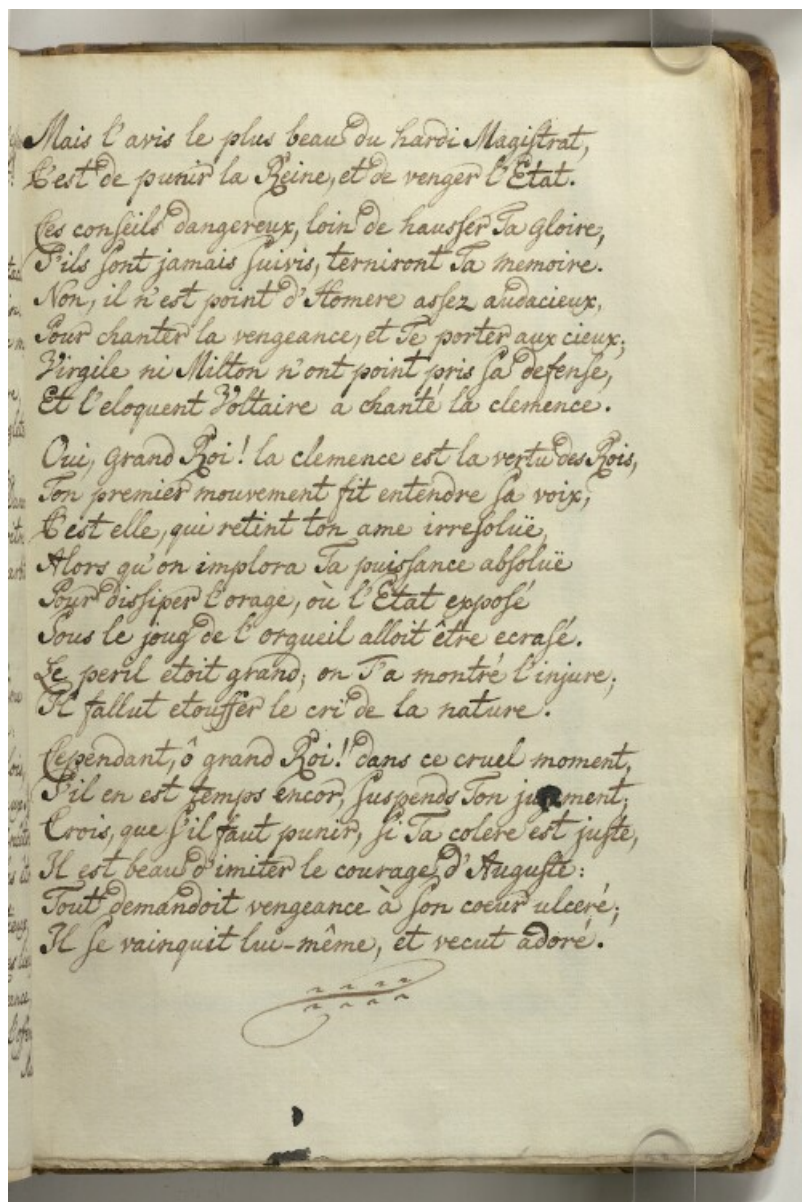 Mais l'avis le plus beau du hardi Magistrat,
C'est de punir la Reine, et de venger l'Etat.
Ces conseils dangereux, loin de hausser Ta gloire,
S'ils sont jamais suivis, terniront Ta memoire.
Non, il n'est point d'Homere assez audacieux,
Pour chanter la vengeance, et Te porter aux cieux;
Virgile ni Milton n'ont point pris sa defense,
Et l'eloquent Voltaire a chanté la clemence.
Oui, grand Roi! la clemence est la vertu des Rois,
Ton premier mouvement fit entendre sa voix;
C'est elle, qui retint ton ame irresoluë,
Alors qu'on implora Ta puissance absoluë
Pour dissiper l'orage, où l'Etat exposé
Sous le joug de l'orgueil alloit être ecrasé.
Le peril etoit grand; on T'a montré l'injure;
Il fallut etouffer le cri de la nature.
Cependant, ô grand Roi! dans ce cruel moment,
S'il en est temps encor, suspends Ton jugement;
Crois, que s'il faut punir, si Ta colere est juste,
Il est beau d'imiter le courage d'Auguste:
Tout demandoit vengeance à son coeur ulceré;
Il se vainquit lui-même, et vecut adoré.